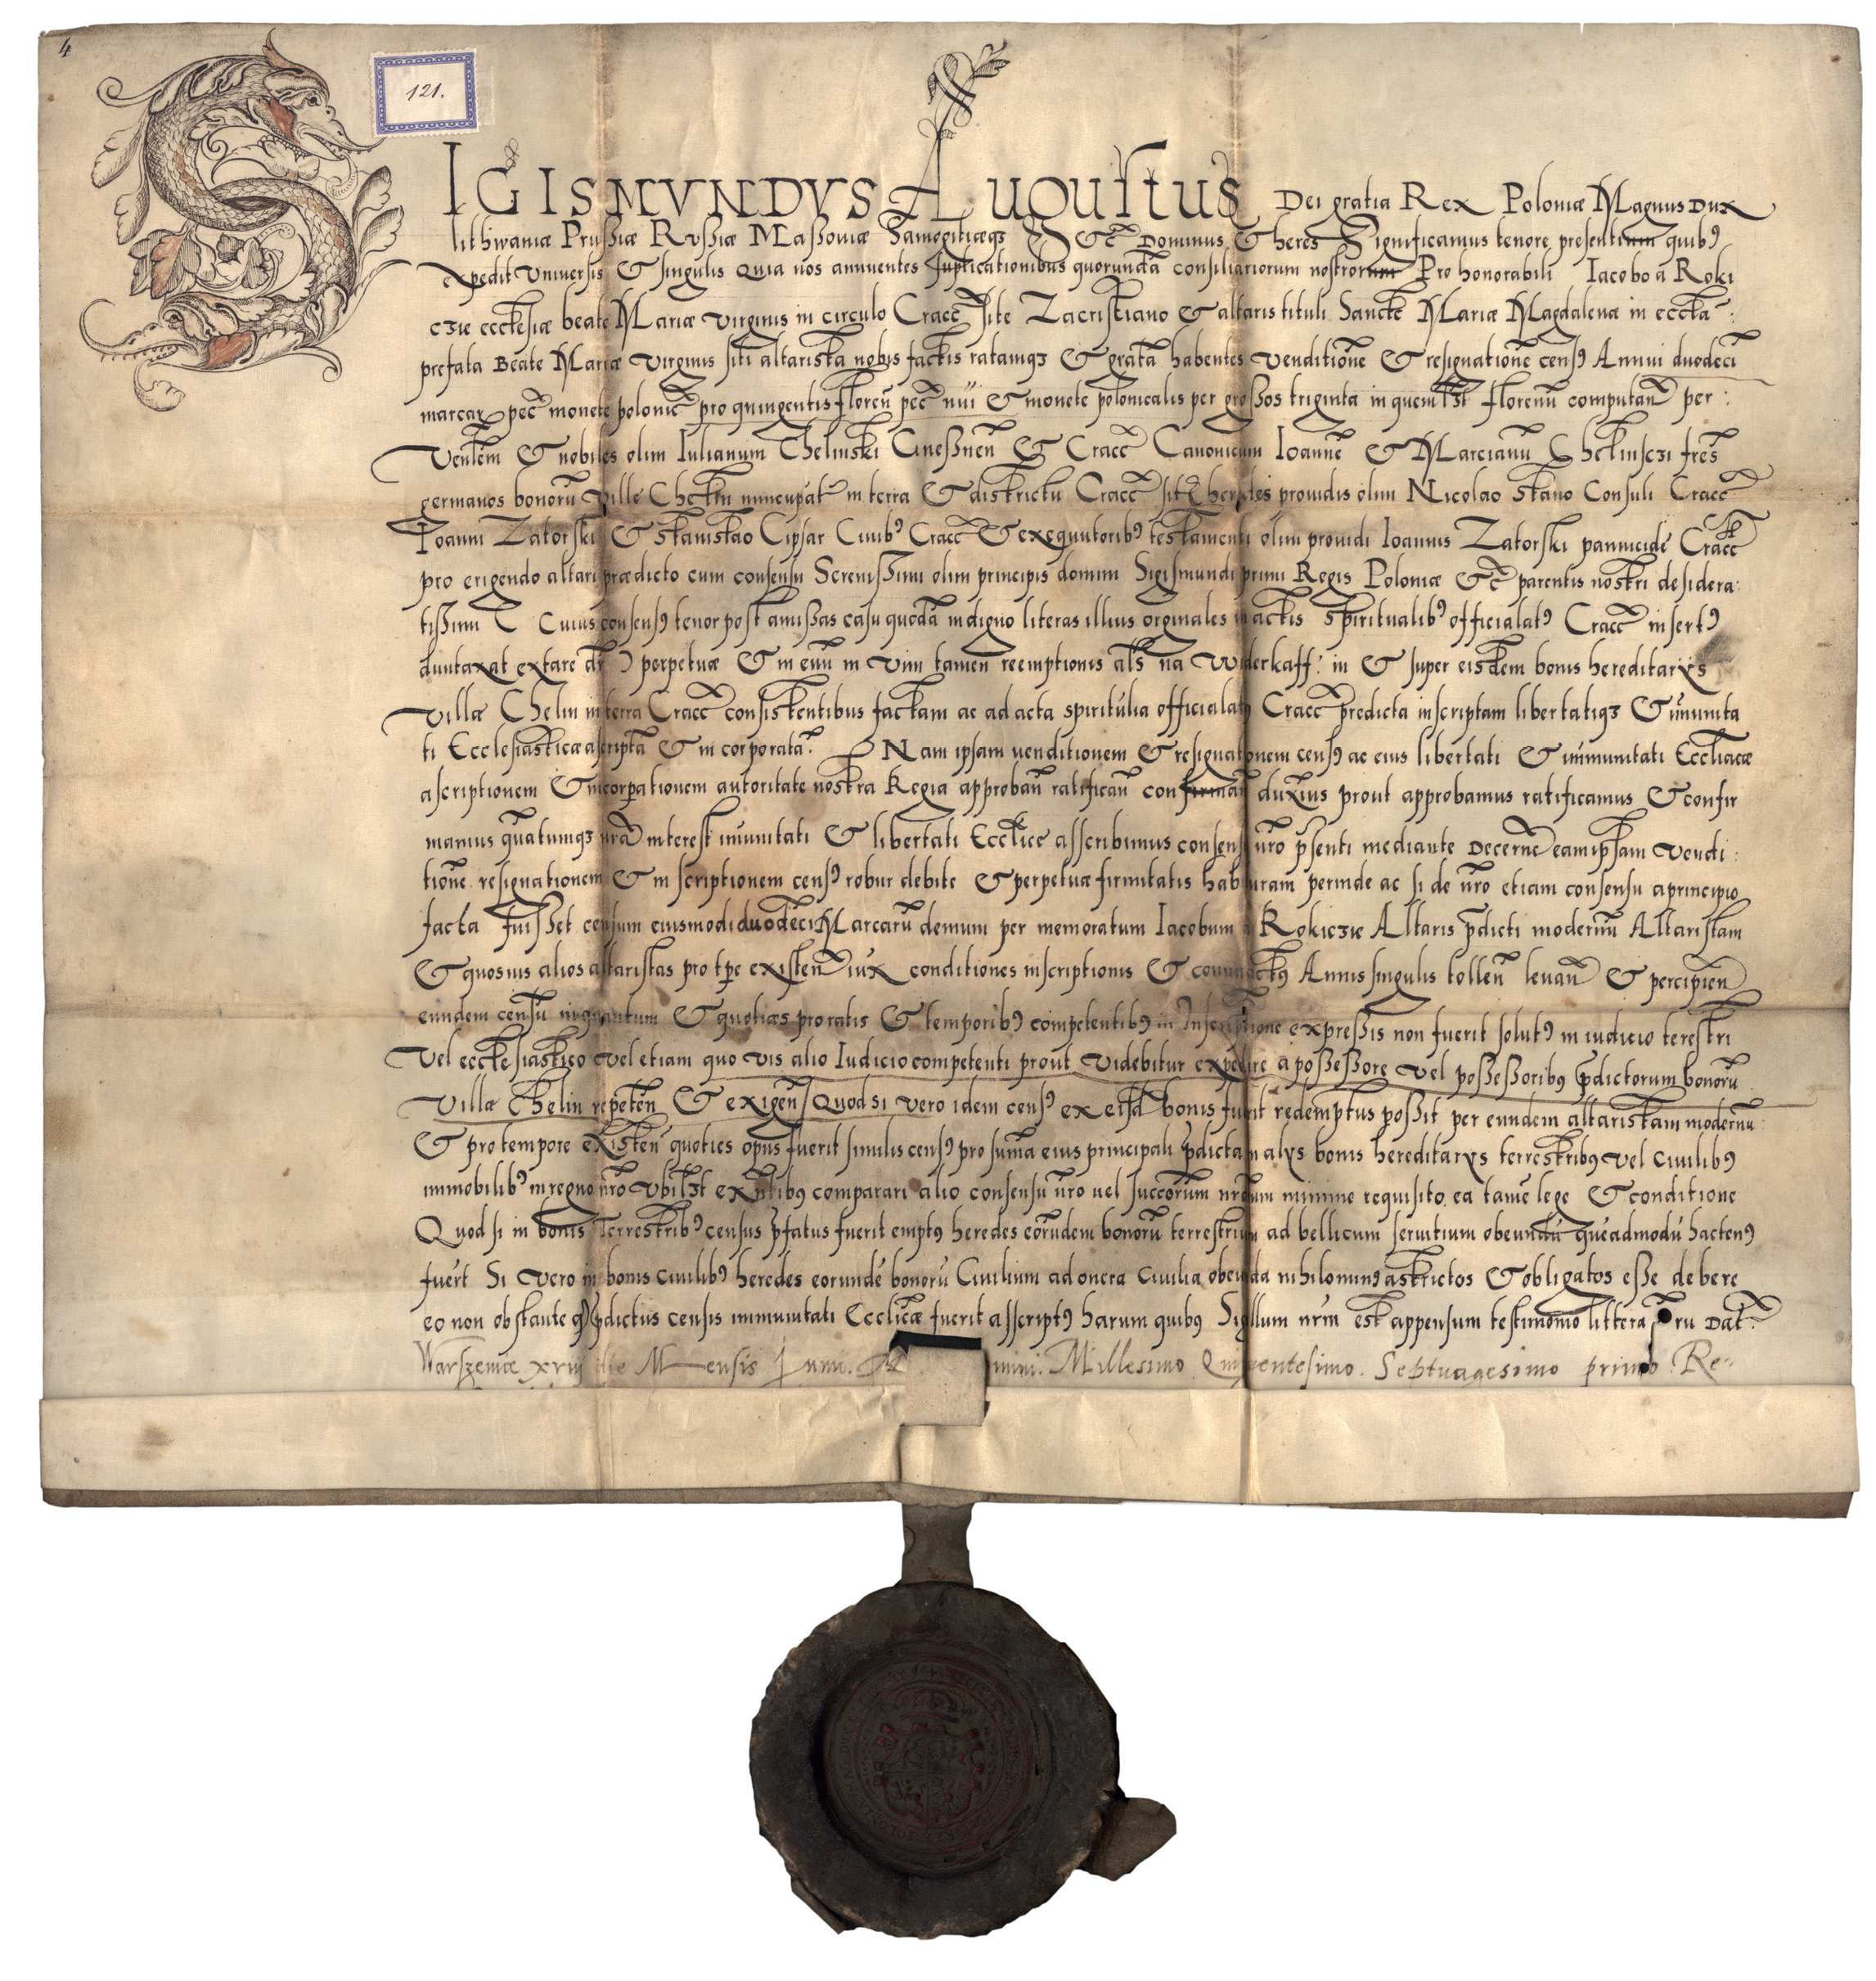 4
121.
SIGISMVNDVS AuGuſtus Dei gratia Rex Poloniæ Magnus Dux
lithwaniæ Prußiæ Rvßiæ Maßoviæ Samogitiæqз &c̃ Dominus & heres Significamus tenore presentium quibꝰ
expedit Universis & singulis Quia nos annuentes supplicationibus quorundã consiliariorum nostrorum Pro honorabili Iacobo a Roki
czie ecclesiæ beate Mariæ virginis in circulo Cracc̃ site Zacristiano & altaris tituli Sancte Mariæ Magdalenæ in eccła:
prefata Beate Mariæ virginis siti altarista nobis factis ratamqз & gratã habentes venditionẽ & resignationẽ censꝰ Annui duodecĩ
marcarꝝ pec̃ monete polonic̃ pro quingentis florenũ pec̃ & monete polonicalis per großos triginta in quemlзt florenũ computan̄ per:
Ven̄lem & nobiles olim Iulianum Chelinski Gneßnen̄ & Cracc̃ Canonicum Ioannẽ & Marcianũ Chelinsczi fr̄es
germanos bonorũ ville Chelin nuncupat̄ in terra & districtu Cracc̃ sit̄ heredes providis olim Nicolao Consuli Cracc̃
Ioanni Zatorski & Stanislao Cipsar Civibꝰ Cracc̃ & exequutoribꝰ testamenti olim providi Ioannis Zatorski pannicide Cracc̃
pro erigendo altari prædicto cum consensu Serenißimi olim principis domini Sigismundi primi Regis Poloniæ &c̃ parentis nostri desidera:
tißimi Cuius consensꝰ tenor post amißas casu quodã indigno literas illius orginales in actis Spiritualibꝰ officialatꝰ Cracc̃ insertꝰ
duntaxat extare dr̄ perpetuæ & in evũ in vim tamen reemptionis al̄s na Widerkaff: in & super eisdem bonis hereditarys
villæ Chelin in terra Cracc̃ consistentibus factam ac ad acta spiritulia officialatꝰ Cracc̃ predicta inscriptam libertatiqз & im̃unita
ti Ecclesiasticæ ascriptã & in corporatã. Nam ipsam venditionem & resignationem censꝰ ac eius libertati & immunitati Eccl̄iacæ
ascriptionem & incorꝑationem autoritate nostra Regia approban̄ ratifican̄ confirman̄ duximus prout approbamus ratificamus & confir
mamus quatumqз nrã interest im̃unitati & libertati Eccl̄ice asscribimus consensu nr̄o p̄senti mediante Decernẽ eam ipsam vendi:
tionẽ resignationem & in scriptionem censꝰ robur debite & perpetuæ firmitatis habituram perinde ac si de nr̄o etiam consensu a principio
facta fuißet censum eiusmodi duodecĩ Marcarũ demum per memoratum Iacobum a Rokiczie Altaris p̄dicti modernũ Altaristam
& quosvis alios altaristas pro tp̄e existen̄ iux̄ conditiones inscriptionis & contractꝰ Annis singulis tollen̄ levan̄ & percipien̄
eundem censũ inquantum & quotiæs pro ratis & temporibꝰ competentibꝰ in Inscriptione expreßis non fuerit solutꝰ in iudicio terestri
vel ecclesiastico vel etiam quo vis alio Iudicio competenti prout videbitur expedire a poßeßore vel poßeßoribꝰ p̄dictorum bonorũ
villæ Chelin repeten̄ & exigen̄ Quod si vero idem censꝰ ex eisd̄ bonis fuerit redemptus poßit per eundem altaristam modernũ:
& pro tempore existen̄ quoties opus fuerit similis censꝰ pro sum̃a eius principali p̄dicta in alys bonis hereditarys terrestribꝰ vel civilibꝰ
immobilibꝰ in regno nr̄o vbilзt exn̄tibꝰ comparari alio consensu nr̄o vel succorũm nr̄orum minime requisito. ea tamẽ lege & conditione
Quod si in bonis Terrestribꝰ census p̄fatus fuerit emptꝰ heredes eorũdem bonorũ terrestrium ad bellicum servitium obeundũ quẽadmodũ hactenꝰ
fuer̄t Si vero in bonis civilibꝰ heredes eorundẽ bonorũ Civilium ad onera civilia obeunda nihilominꝰ astrictos & obligatos eße debere
eo non obstante qꝫ p̄dictus censis immunitati Eccl̄icæ fuerit asscriptꝰ harum quibus Sigillum nr̄m est appensum testimonio litterarũ Dat̄:
Warszeviæ xviij die Mensis Iunii. mini. Millesimo Quingentesimo. Septuagesimo primo. Re